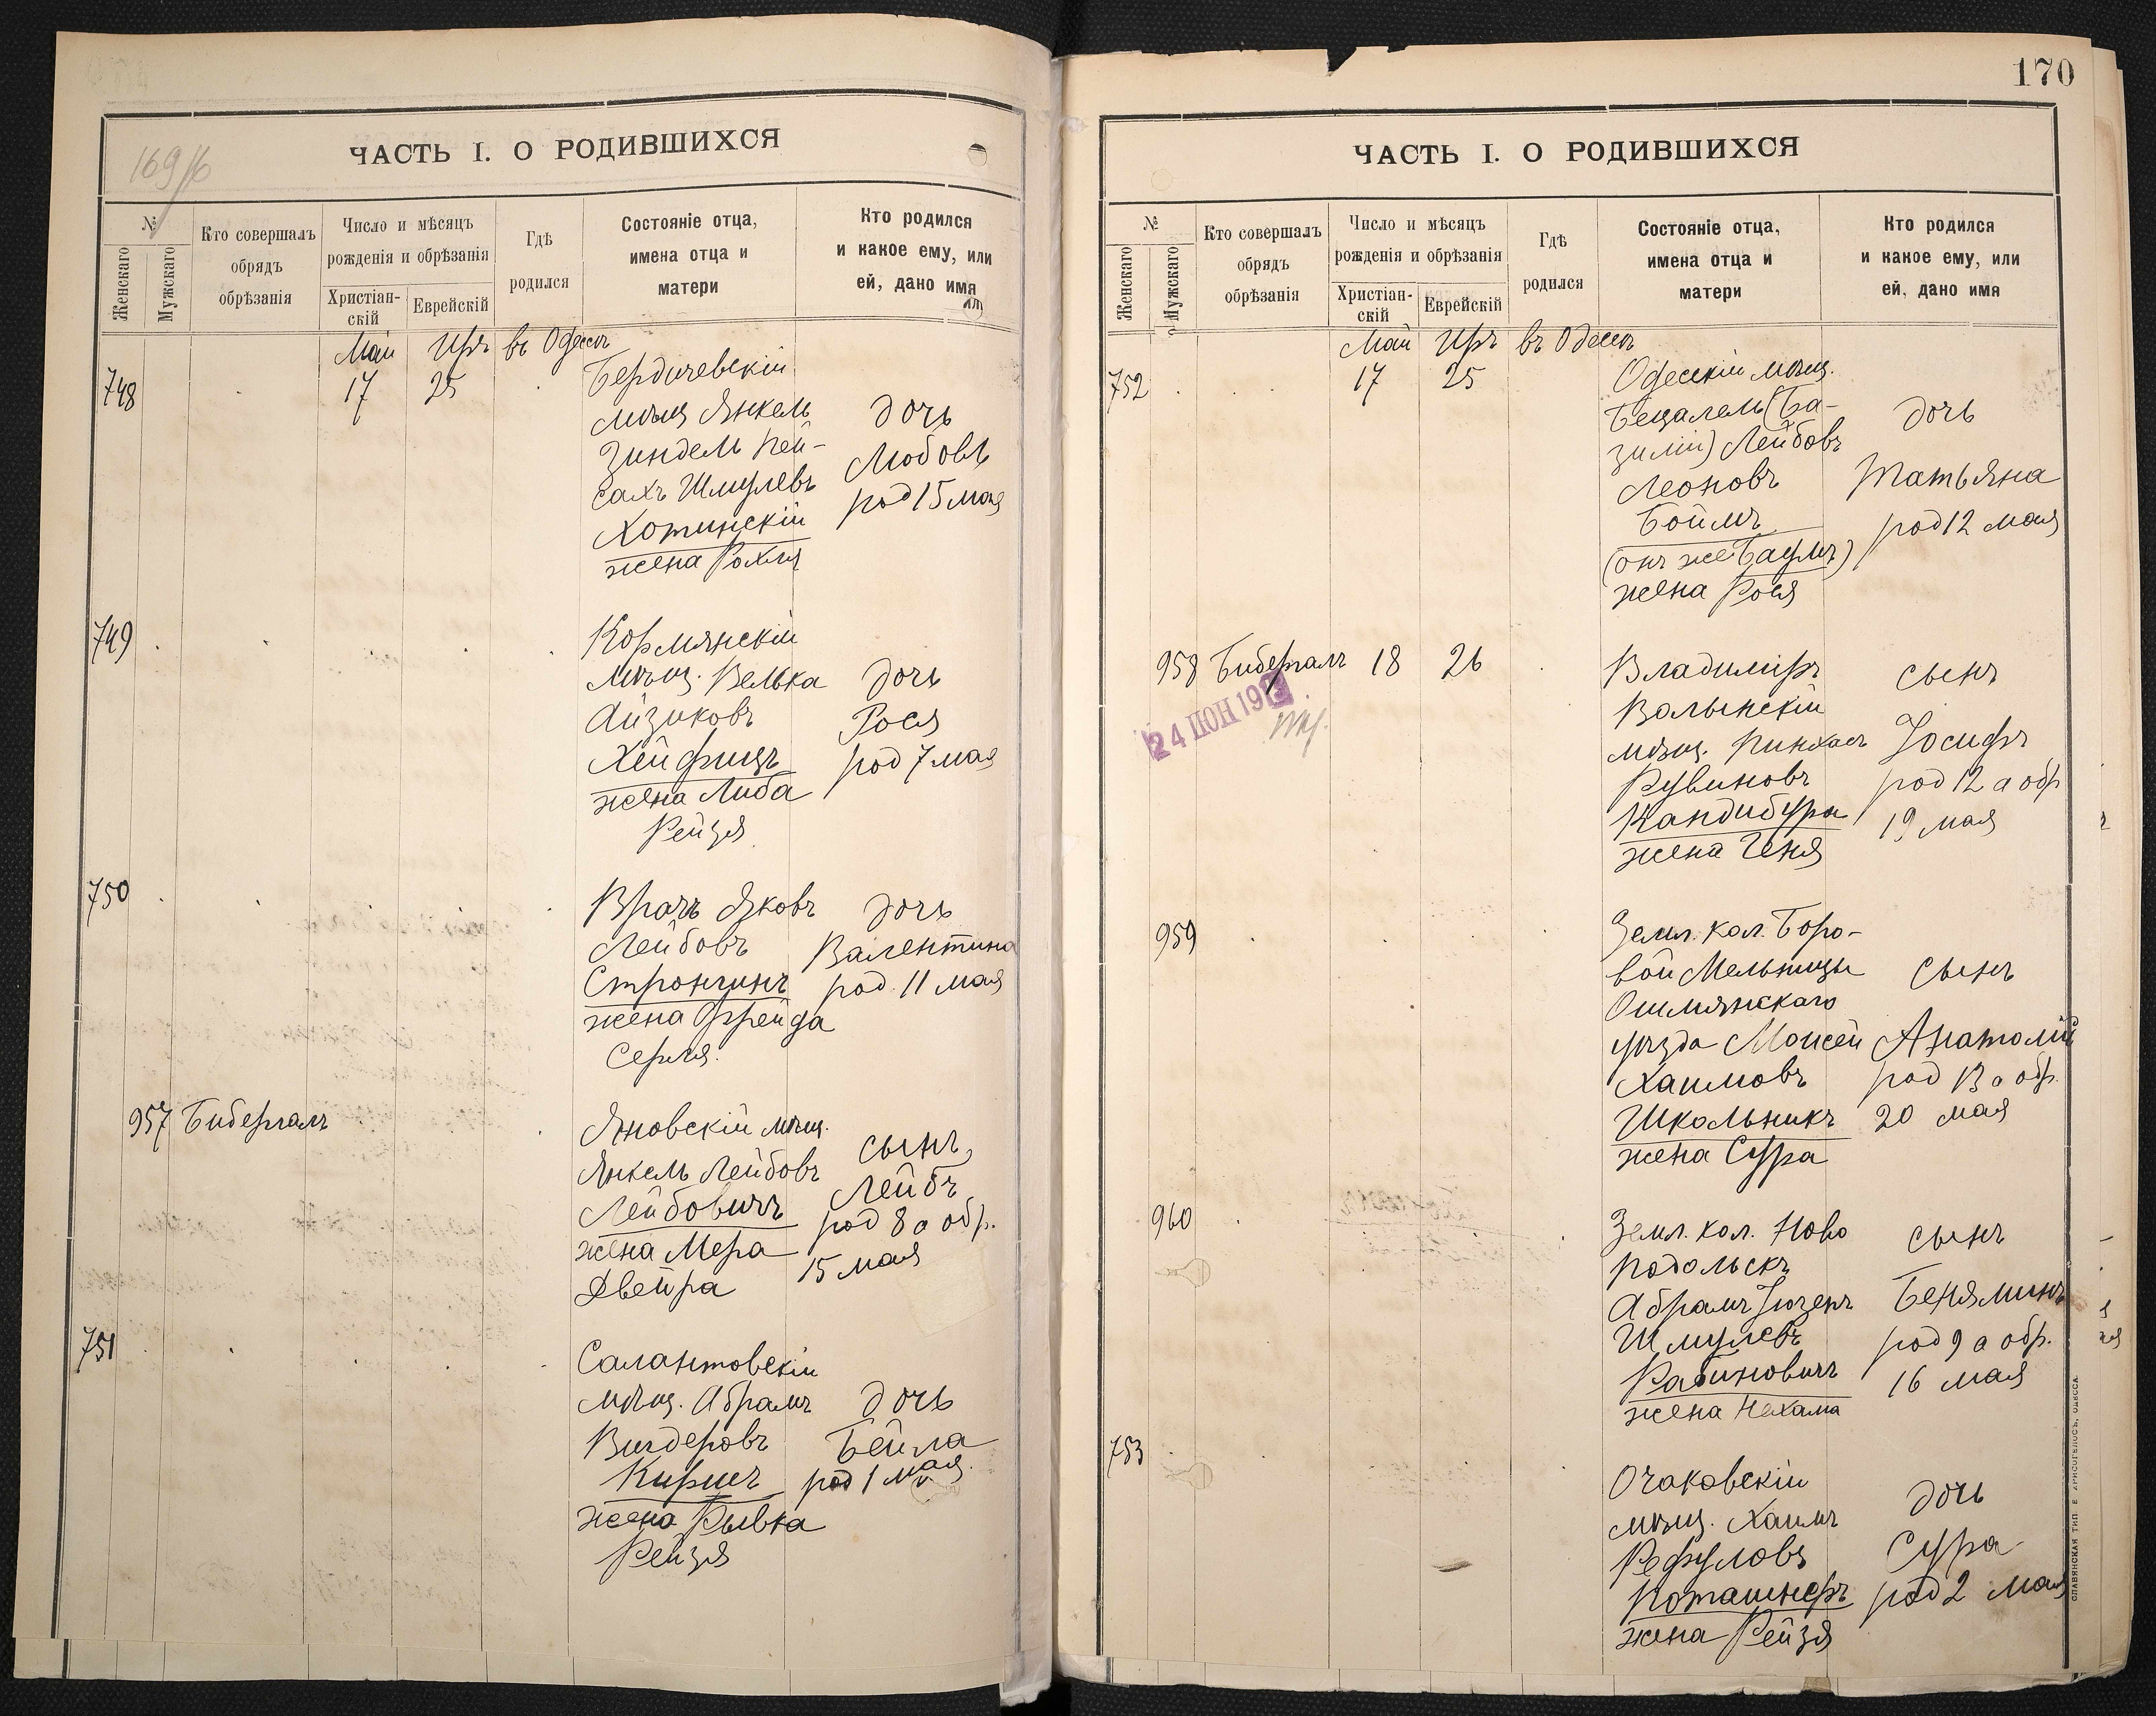 169/б
ЧАСТЬ I. О РОДИВШИХСЯ
№
Женскаго
Мужскаго
Кто совершалъ
обрядъ
обрѣзанія
Число и мѣсяцъ
рожденія и обрѣзанія
Христіан-
скій
Еврейскій
Гдѣ
родился
Состояніе отца,
имена отца и
матери
Кто родился
и какое ему, или
ей, дано имя
Май Иръ въ Одессѣ
748 17 25
Бердичевскій
мѣщ Янкель
Зиндель Пей-
сахъ Шмулевъ
Хотинскій
жена Рохля
дочь
Любовь
род 15 мая
749
Кормянскій
мѣщ. Велька
Айзиковъ
Хейфицъ
жена Либа
Рейзя
дочь
Рося
род 7 мая
750
Врачъ Яковъ
Лейбовъ
Стронгинъ
жена Фрейда
Серля.
дочь
Валентина
род. 11 мая
957 Бибергалъ
Яновскій мѣщ.
Янкель Лейбовъ
Лейбовичъ
жена Мера
Двейра
сынъ
Лейбъ
род 8 а обр.
15 мая
751
Салантовскій
мѣщ. Абрамъ
Вигдеровъ
Киршъ
жена Рывка
Рейзя
дочь
Бейла
род 1 мая.
170
ЧАСТЬ I. О РОДИВШИХСЯ
№
Женскаго
Мужскаго
Кто совершалъ
обрядъ
обрѣзанія
Число и мѣсяцъ
рожденія и обрѣзанія
Христіан-
скій
Еврейскій
Гдѣ
родился
Состояніе отца,
имена отца и
матери
Кто родился
и какое ему, или
ей, дано имя
Май Иръ въ Одессѣ
752 17 25
Одесскій мѣщ.
Бецалель (Ва-
зилій) Лейбовъ
Леоновъ
Боймъ
(онъ же Баумъ)
жена Рося
дочь
Татьяна
род 12 мая
958 Бибергалъ 18 26
24 ІЮН 191
Владиміръ
Волынскій
мѣщ. Пинхасъ
Рувиновъ
Кандибура
жена Геня
сынъ
Іосифъ
род 12 а обр
19 мая
959
Земл. кол. Боро-
вой Мельницы
Ошмянскаго
уѣзда Мойсей
Хаимовъ
Школьникъ
жена Сура
сынъ
Анатолій
род 13 а обр.
20 мая
960
Земл. кол. Ново
Подольскъ
Абрамъ Іозепъ
Шмулевъ
Рабиновичъ
жена Нехама
сынъ
Беняминъ
род 9 а обр.
16 мая
753
Очаковскій
мѣщ. Хаимъ
Рефуловъ
Коташнеръ
жена Рейзя
дочь
Сура
род 2 мая
СЛАВЯНСКАЯ ТИП. Е. ХРИСОГЕЛОСЪ, ОДЕССА.